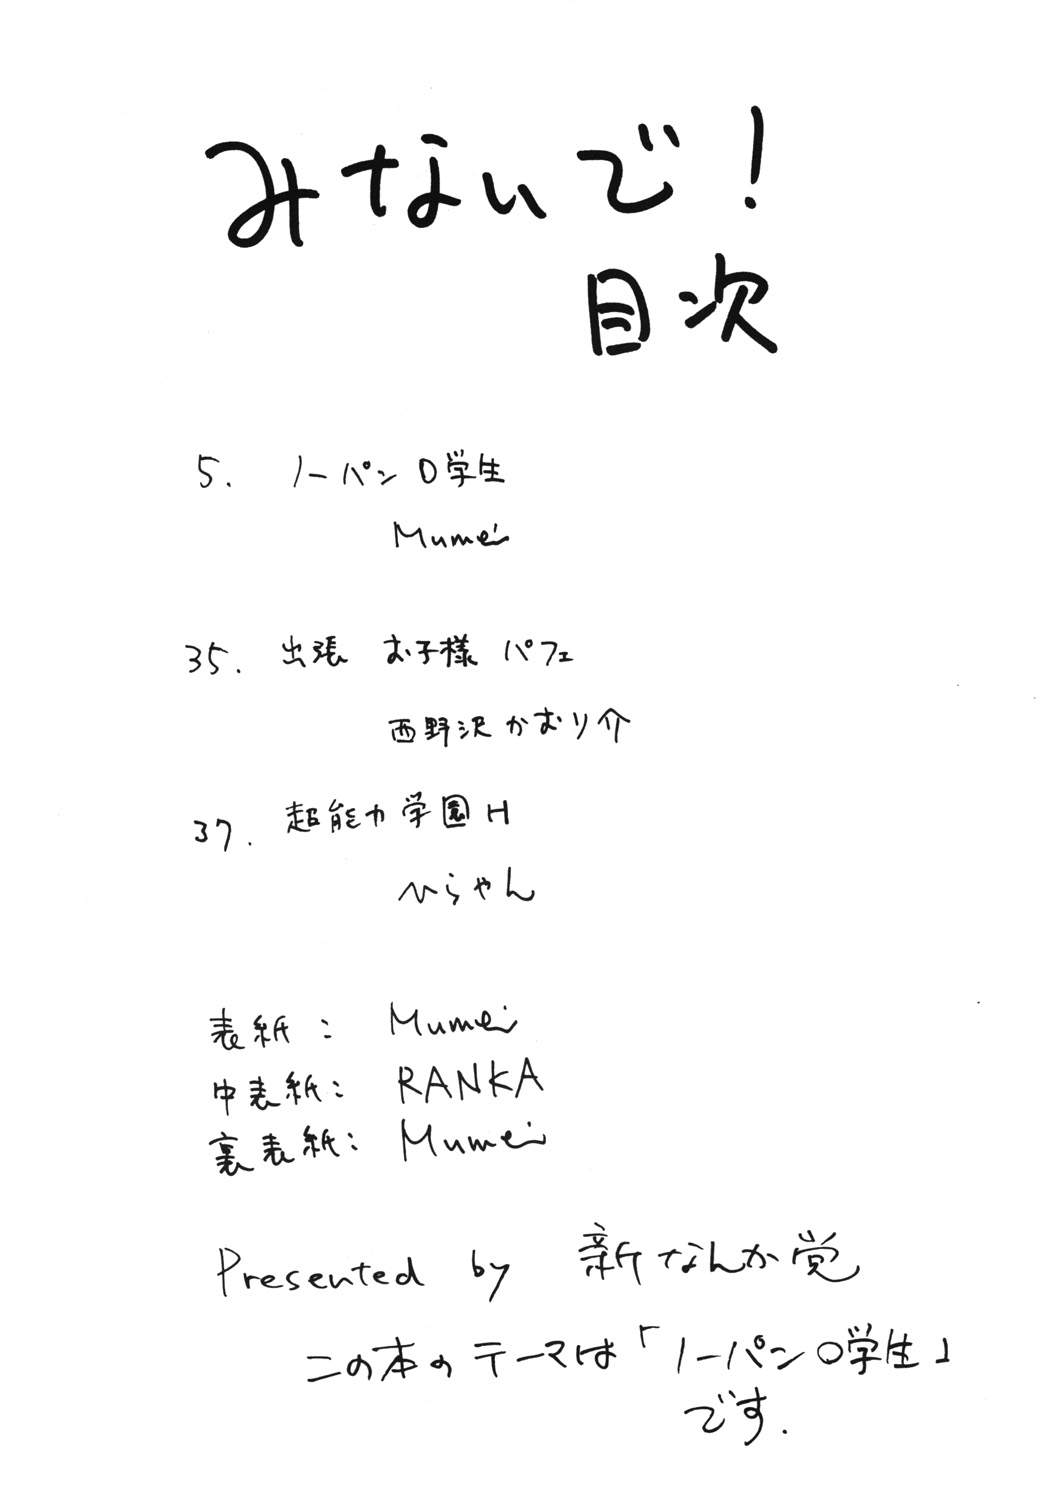 みないで!
目次
5. ノーパン〇学生
Mumei
35. 出張 お子様 パフェ
西野沢かおり介
37. 超能力学園H
ひらやん
表紙: Mumei
中表紙: RANKA
裏表紙: Mumei
Presented by 新なんか党
この本のテーマは「ノーパン〇学生」
です.